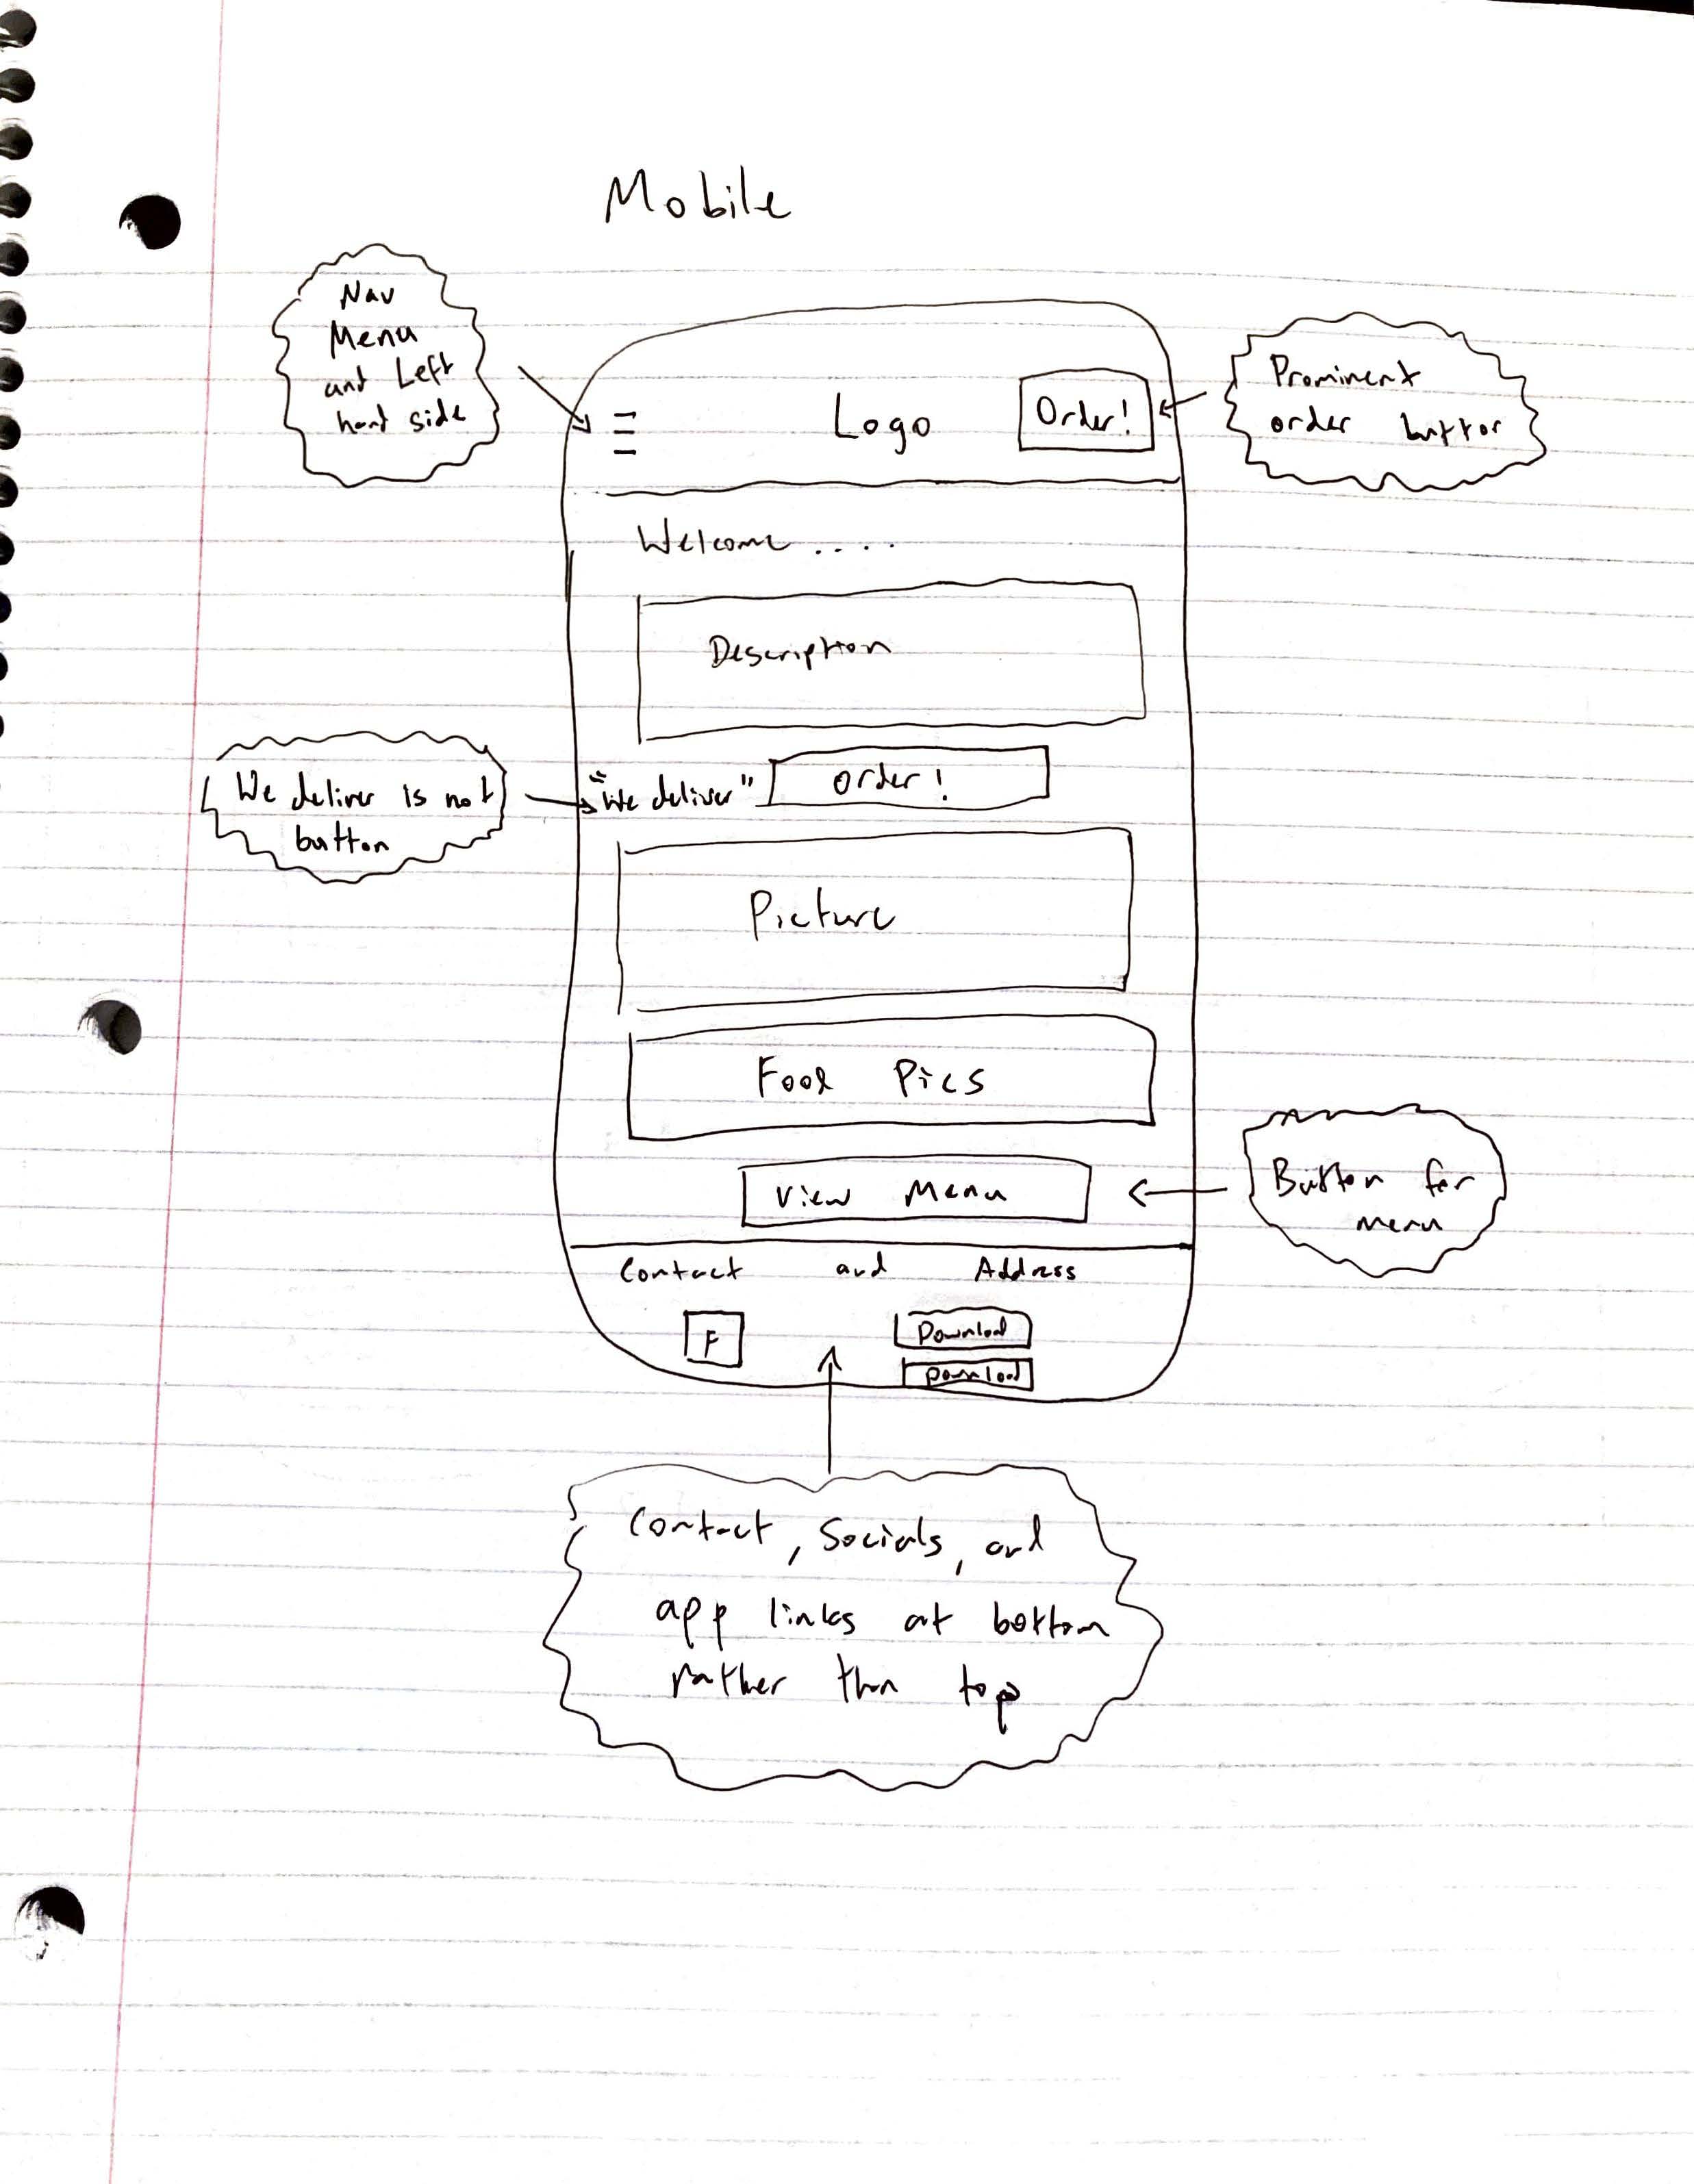 Mobile
Nav
Menu
and Left
hand side
Logo
Order!
Prominent
order button
Welcome ....
Description
We deliver is not
button
"We deliver"
Order!
Picture
Food Pics
View Menu
Button for
menu
Contact and Address
F
Download
Download
Contact, Socials, and
app links at bottom
rather than top